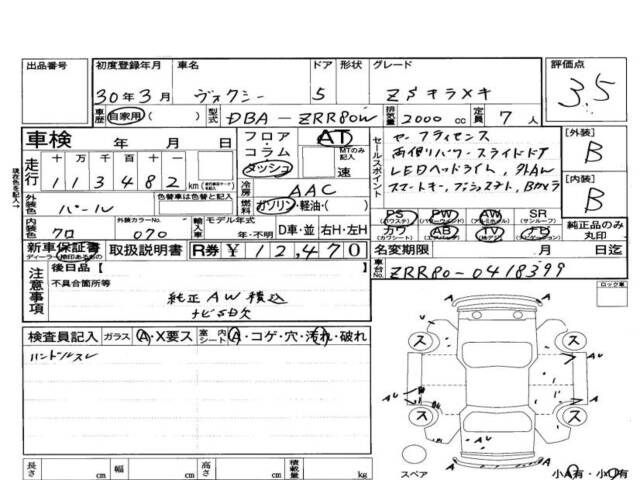 出品番号 初度登録年月 車名 ドア 形状 グレード 評価点
30年3月 ヴォクシー 5 ZSキラメキ 3.5
車歴 自家用 ( ) 型式 DBA-ZRR80W 排気量 2000 cc 定員 7 人
車検 年 月 日 フロア・コラム・ダッシュ AT MTのみ記入 速
セールスポイント
セーフティセンス
両側パワースライドドア
LEDヘッドライト, 外AW
スマートキー, プッシュスタート, Bカメラ
[外装] B
[内装] B
走行 十 万 千 百 十 一
113482 km
現在色を記入→
外装色 パール 色替車は色替と記入
冷房 AAC
燃料 ガソリン・軽油・( )
内装色 クロ 外装カラーNo. 070 輸入車 モデル年式 年・不明 D車・並 右H・左H
PS (パワステ) PW (パワーウインドウ) AW (アルミホイル) SR (サンルーフ)
カワ (カワシート) AB (エアバッグ) TV (テレビ) ナビ (ナビゲーション)
純正品のみ丸印
新車保証書 ディーラー捺印あるもの 取扱説明書 R券 ¥12,470
名変期限 月 日迄
車台No. ZRR80-0418399
注意事項
後目品 [ ]
不具合箇所等
純正AW積込
ナビSD欠
ロック車
検査員記入 ガラス A・X要ス 室内シート A・コゲ・穴・汚れ・破れ
ハンドルスレ
A A
A U A U
ス ス
A U
ス ス
A A
スペア
小A有・小U有
長さ cm 幅 cm 高さ cm 積載量 kg